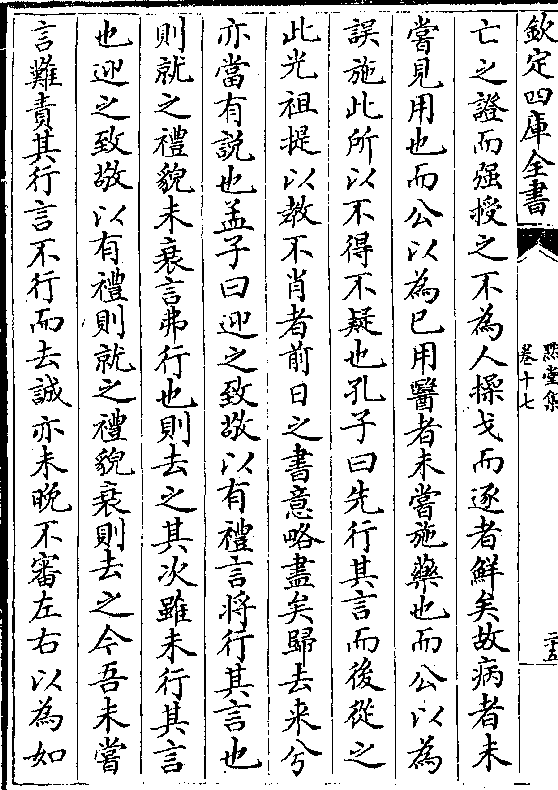 欽定四庫全書
黙堂集
卷十七
二五
亡之證而强授之不為人操戈而逐者鮮矣故病者未
嘗見用也而公以為已用醫者未嘗施藥也而公以為
誤施此所以不得不疑也孔子曰先行其言而後從之
此光祖提以教不肖者前日之書意略盡矣歸去来兮
亦當有説也孟子曰迎之致敬以有禮言將行其言也
則就之禮貌未衰言弗行也則去之其次雖未行其言
也迎之致敬以有禮則就之禮貌衰則去之今吾未嘗
言難責其行言不行而去誠亦未晩不審左右以為如